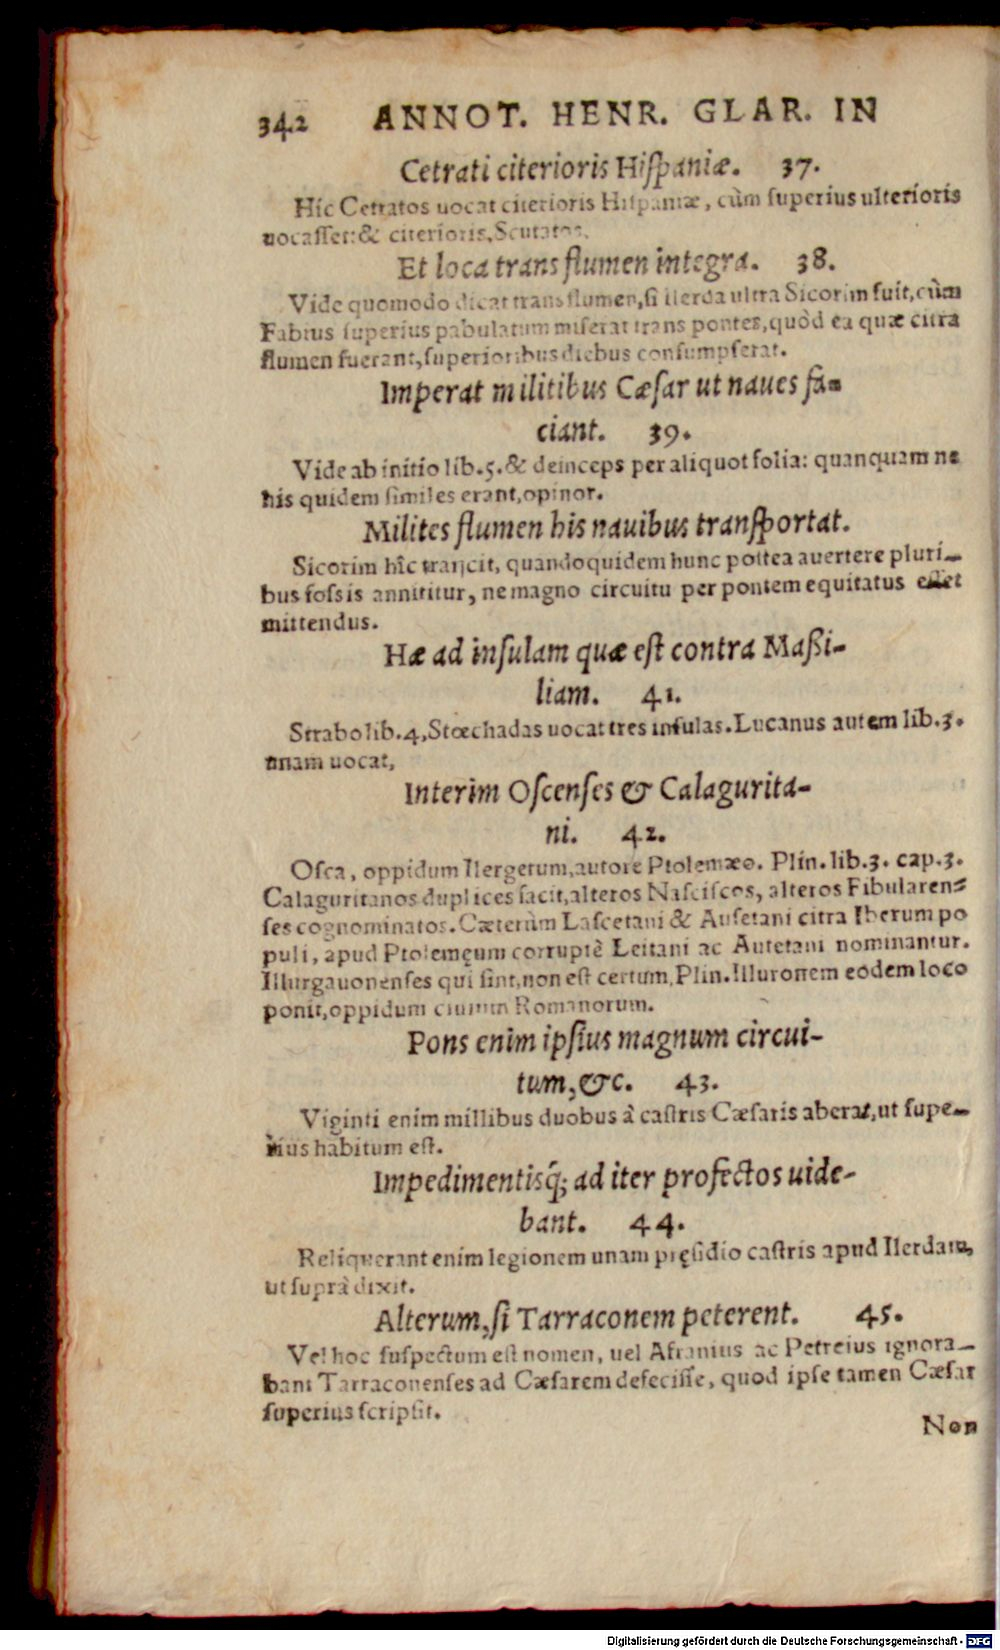 342 ANNOT. HENR. GLAR. IN
Cetrati citerioris Hiſpaniæ. 37.
Híc Cetratos uocat citerioris Hiſpaniæ, cùm ſuperius ulterioris
uocaſſet: & citerioris, Scutatos.
Et loca trans flumen integra. 38.
Vide quomodo dicat trans flumen, ſi Ilerda ultra Sicorim fuit, cùm
Fabius ſuperius pabulatum miſerat trans pontes, quòd ea quæ citra
flumen fuerant, ſuperioribus diebus conſumpſerat.
Imperat militibus Cæſar ut naues fa-
ciant. 39.
Vide ab initio lib. 5. & deinceps per aliquot folia: quanquam ne
his quidem ſimiles erant, opinor.
Milites flumen his nauibus tranſportat.
Sicorim hîc traijcit, quandoquidem hunc poſtea auertere pluri-
bus foſsis annititur, ne magno circuitu per pontem equitatus eſſet
mittendus.
Hæ ad inſulam quæ eſt contra Maßi-
liam. 41.
Strabo lib. 4, Stœchadas uocat tres inſulas. Lucanus autem lib. 3.
unam uocat,
Interim Oſcenſes & Calagurita-
ni. 42.
Oſca, oppidum Ilergetum, autore Ptolemæo. Plin. lib. 3. cap. 3.
Calaguritanos duplices facit, alteros Naſciſcos, alteros Fibularen-
ſes cognominatos. Cæterùm Laſcetani & Auſetani citra Iberum po
puli, apud Ptolemęum corruptè Leitani ac Autetani nominantur.
Illurgauonenſes qui ſint, non eſt certum, Plin. Illuronem eodem loco
ponit, oppidum ciuium Romanorum.
Pons enim ipſius magnum circui-
tum, &c. 43.
Viginti enim millibus duobus à caſtris Cæſaris aberat, ut ſupe-
rius habitum eſt.
Impedimentisq́; ad iter profectos uide-
bant. 44.
Reliquerant enim legionem unam pręſidio caſtris apud Ilerdam,
ut ſuprà dixit.
Alterum, ſi Tarraconem peterent. 45.
Vel hoc ſuſpectum eſt nomen, uel Afranius ac Petreius ignora-
bant Tarraconenſes ad Cæſarem defeciſſe, quod ipſe tamen Cæſar
ſuperius ſcripſit.
Non
Digitalisierung gefördert durch die Deutsche Forschungsgemeinschaft - DFG